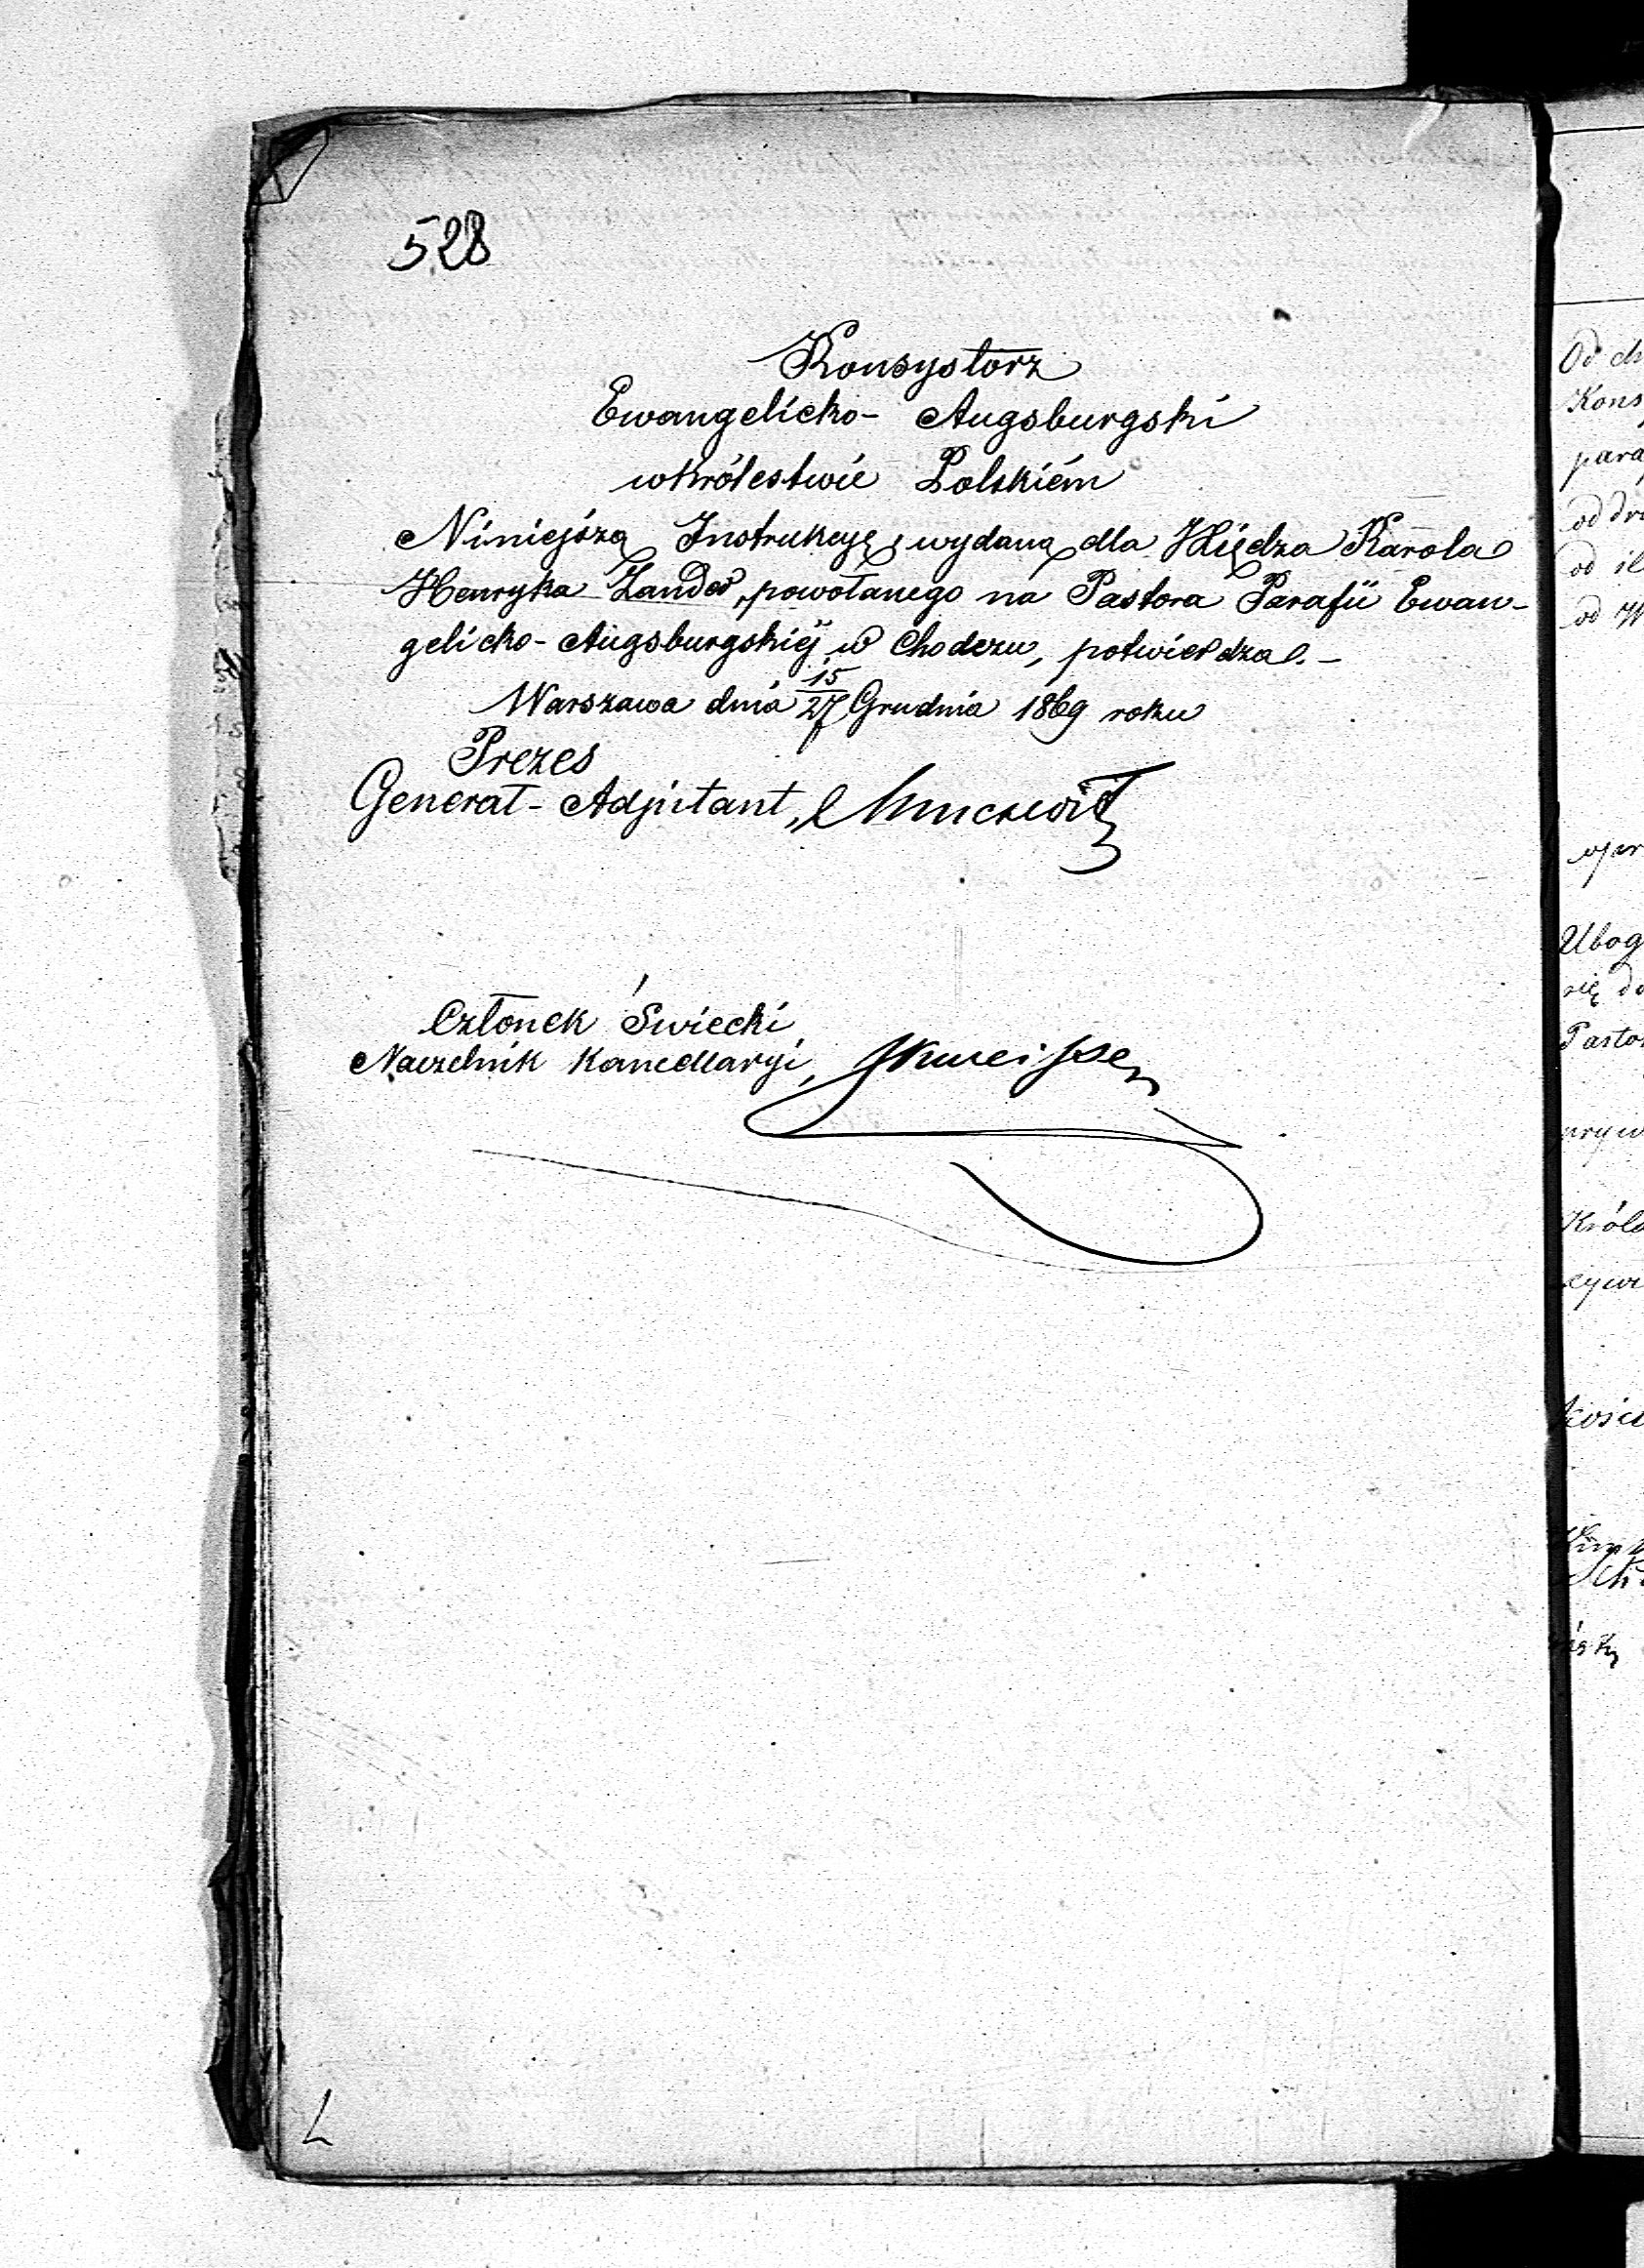 528
Konsystorz
Ewangelicko- Augsburgski
w Królestwie Polskiém
Niniejszą Instrukcyę, wydaną dla Księdza Karola
Henryka Zander, powołanego na Pastora Parafii Ewan-
gelicko-Augsburgskiéj w Chodczu, potwierdza.-
Warszawa dnia 15/27 Grudnia 1869 roku
Prezes
Generał-Adjutant,
Członek Świecki
Naczelnik Kancellaryi,
Od
Kons
para
od
od
od W
Ubog
się do
Pasto
Króle